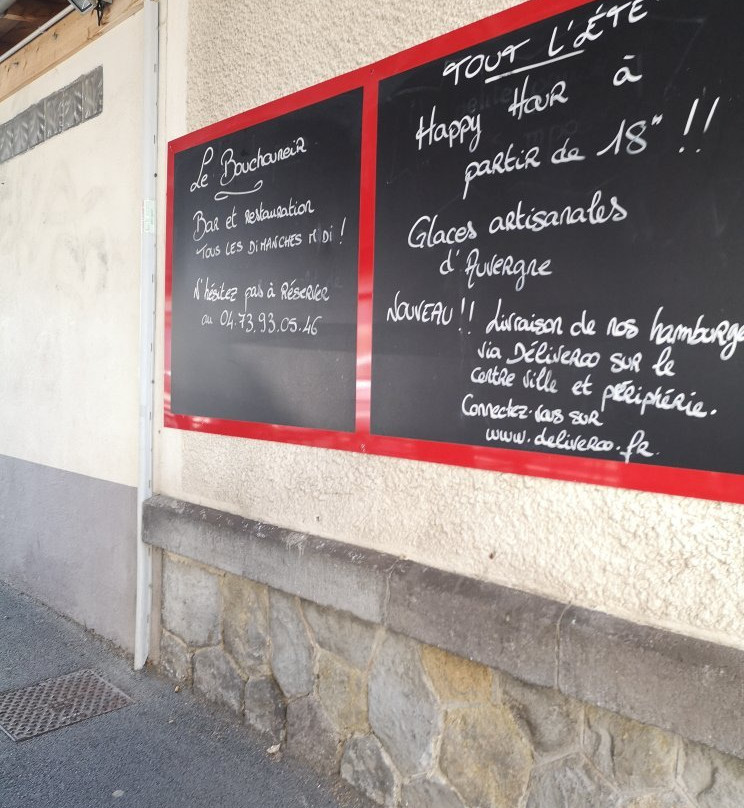 Le Bouchoureix
Bar et restauration
TOUS LES DIMANCHES MIDI !
N'hésitez pas à Réserver
au 04.73.93.05.46
TOUT L'ÉTÉ
Happy Hour à
partir de 18" !!
Glaces artisanales
d'Auvergne
NOUVEAU !! Livraison de nos hamburge
via Déliveroo sur le
centre ville et périphérie.
Connectez-vous sur
www.deliveroo.fr